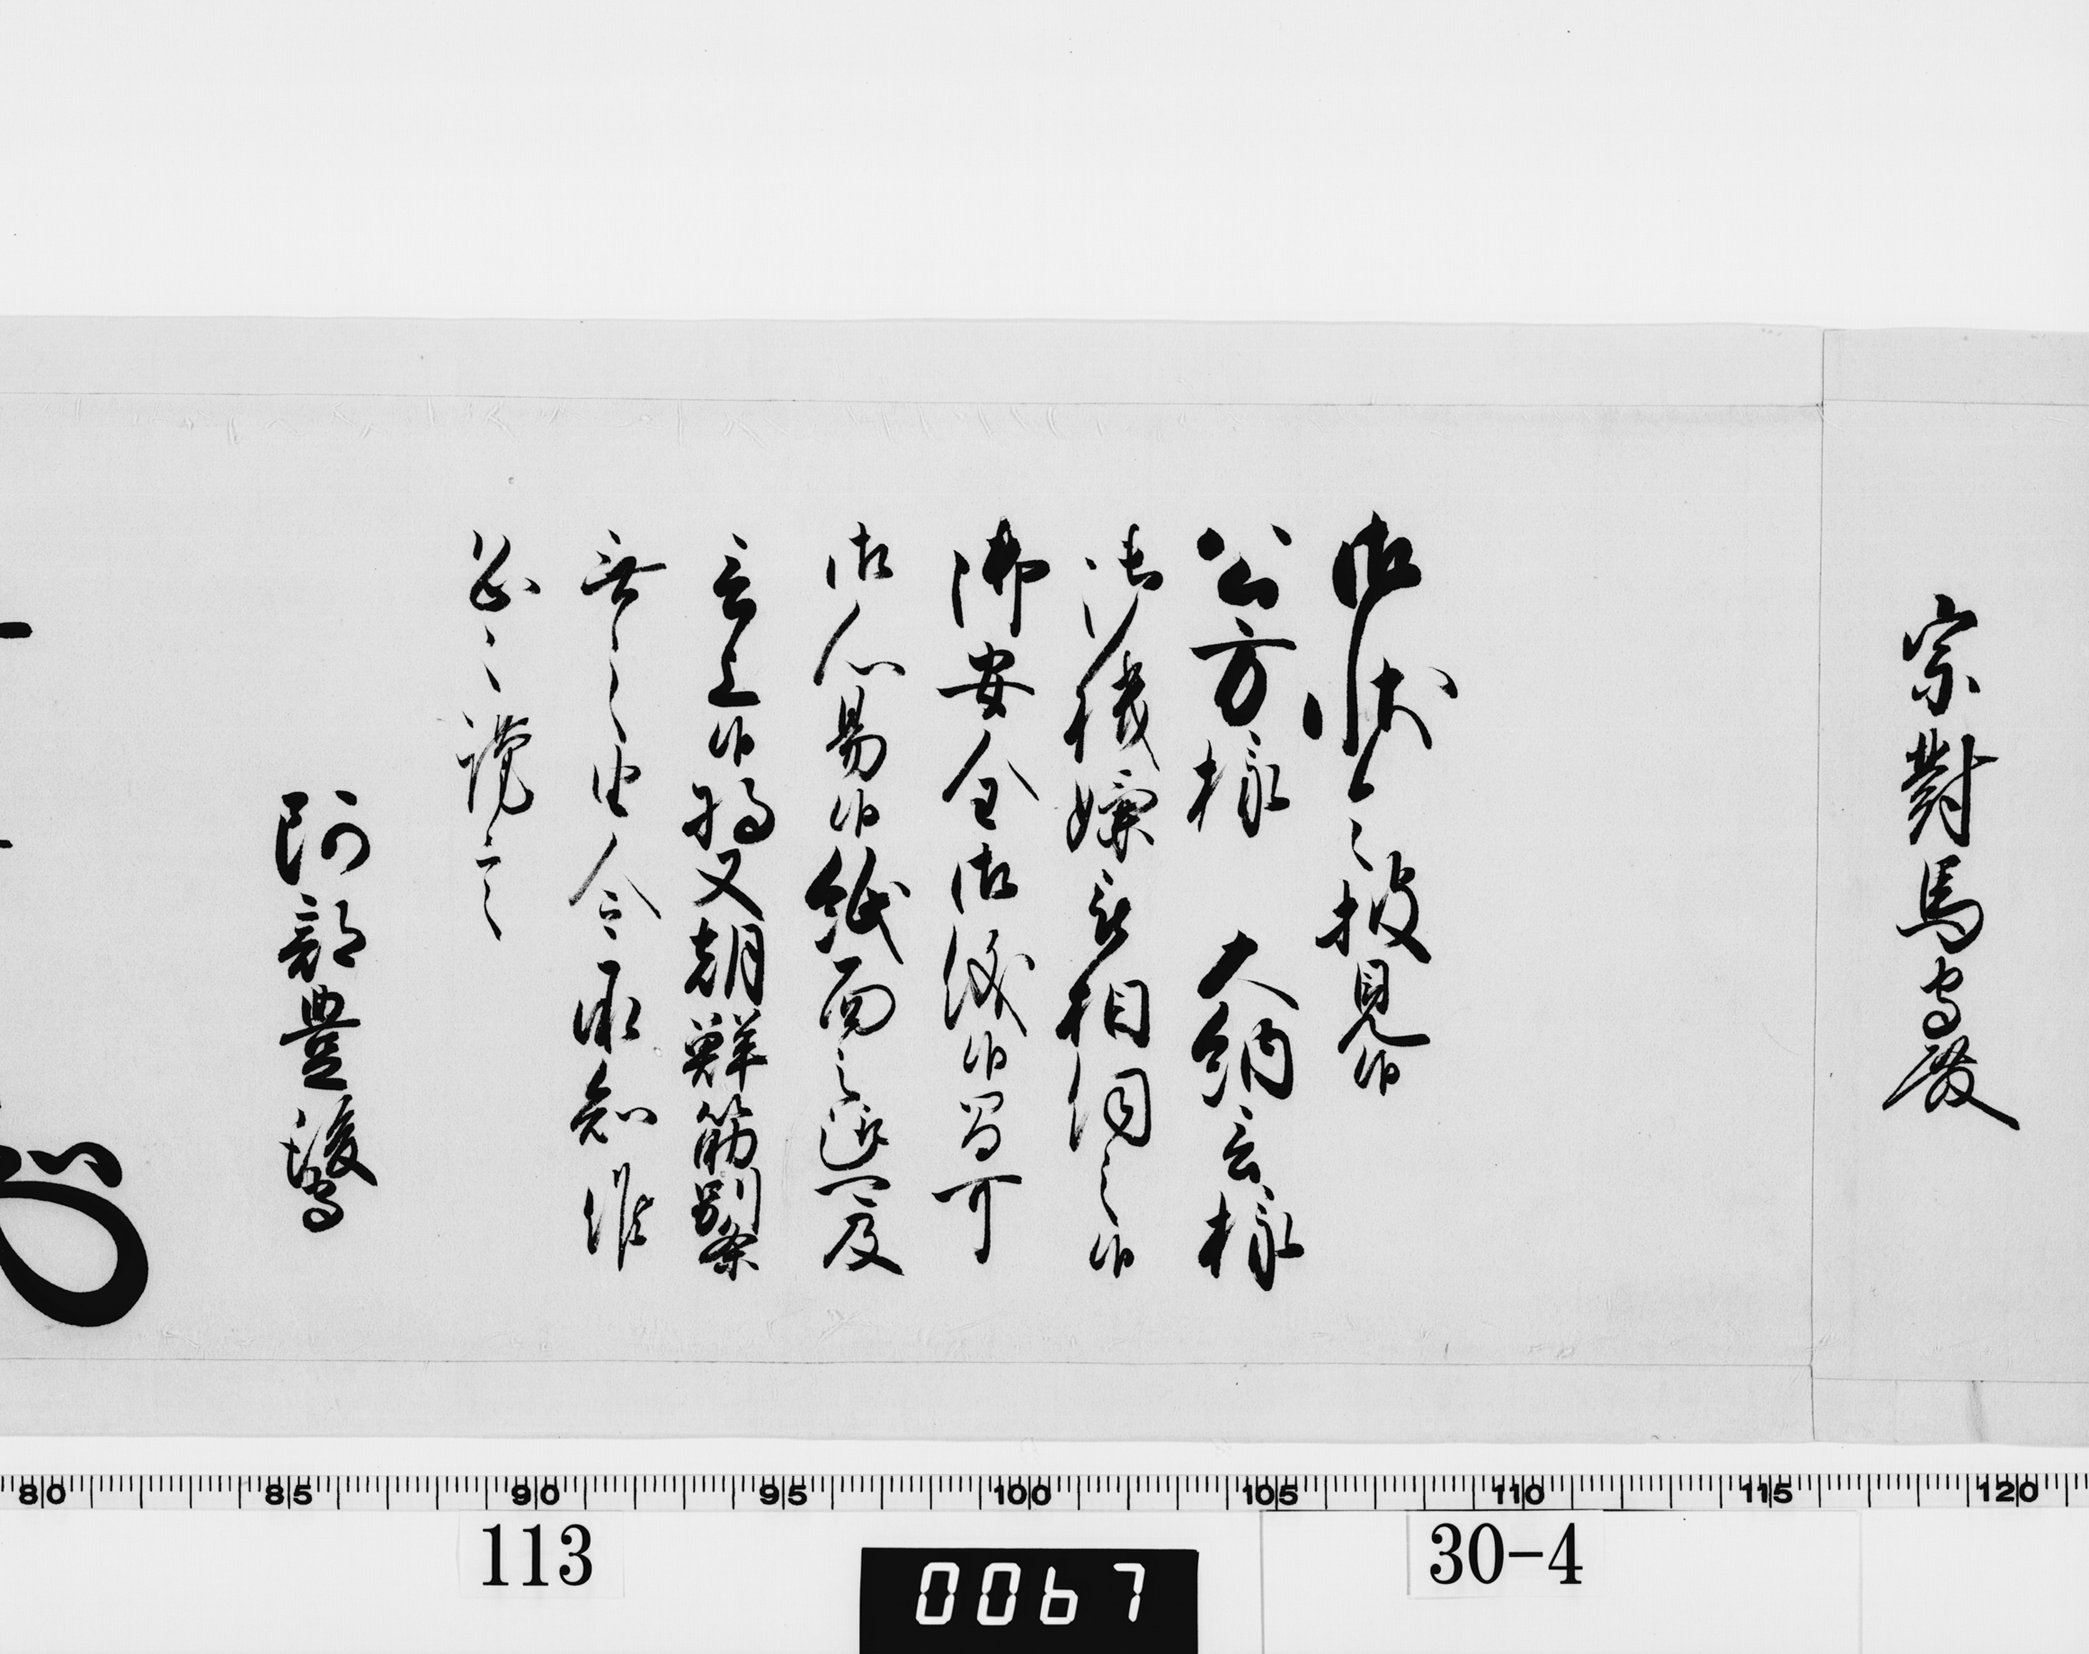 宗對馬守殿
御状令披見候
公方樣 大納言樣
御機嫌被相伺之候
弥安全御儀候間可
御心易候紙面之趣可及
言上候將又朝鮮筋別条
無之由令承知候
恐々謹言
阿部豊後守
80 85 90 95 100 105 110 115 120
113
0067
30-4